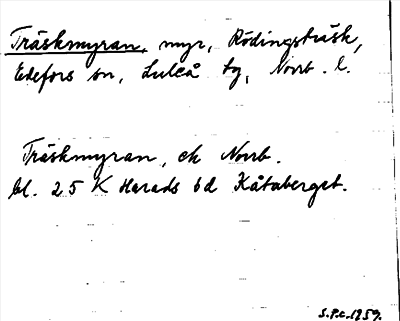 Träskmyran, myr, Rödingsträsk,
Edefors sn, Luleå tg, Norrb. l.
Träskmyran, ek Norrb.
bl. 25 K Harads bd Kåtaberget.
S.P.c. 1959.